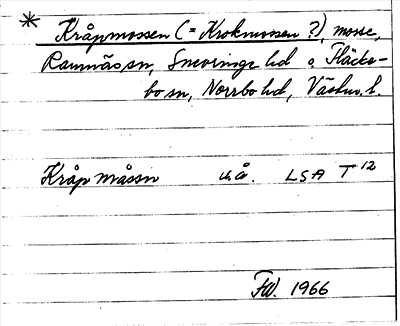 * Kråpmossen (= Krokmossen ?), mosse,
Ramnäs sn, Snevringe hd o Fläcke-
bo sn, Norrbo hd, Västm. l.
Kråp måssn u.å. LSA T 12
FW. 1966